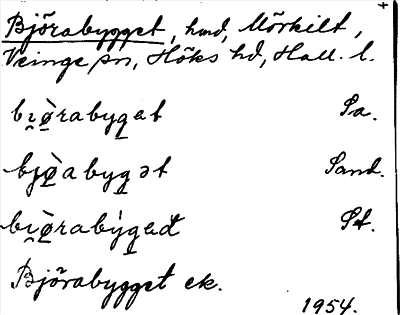 Björabygget, hmd, Mörkilt,
Veinge sn, Höks hd, Hall. l.
bi̯ø̀rabyga​t Sa.
bjø̀abygət Sand.
bi̯ø̀rabýgat St.
Björabygget ek.
1954.